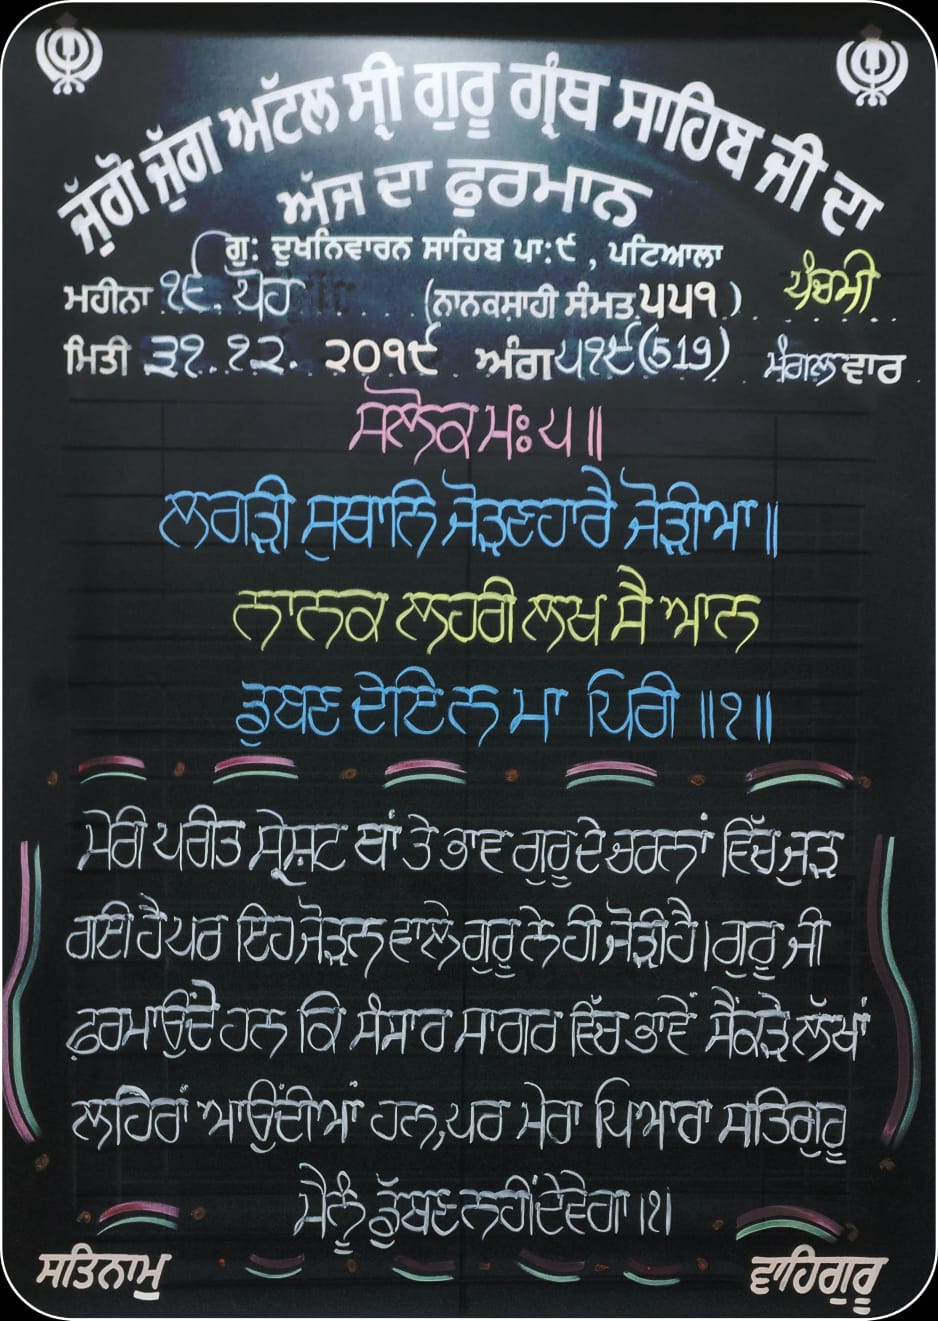 ਜੁੱਗੋ ਜੁੱਗ ਅੱਟਲ ਸ੍ਰੀ ਗੁਰੂ ਗ੍ਰੰਥ ਸਾਹਿਬ ਜੀ ਦਾ
ਅੱਜ ਦਾ ਫੁਰਮਾਨ
ਗੁ: ਦੁਖਨਿਵਾਰਨ ਸਾਹਿਬ ਪਾ:੯ , ਪਟਿਆਲਾ
ਮਹੀਨਾ ੧੬ ਪੋਹ (ਨਾਨਕਸਾਹੀ ਸੰਮਤ ੫੫੧ ) ਪੰਚਮੀ
ਮਿਤੀ ੩੧.੧੨. ੨੦੧੯ ਅੰਗ ੫੧੯(519) ਮੰਗਲਵਾਰ
ਸਲੋਕ ਮਃ ੫ ॥
ਲਗੜੀ ਸੁਥਾਨਿ ਜੋੜਣਹਾਰੈ ਜੋੜੀਆ ॥
ਨਾਨਕ ਲਹਰੀ ਲਖ ਸੈ ਆਨ
ਡੁਬਣ ਦੇਇ ਨ ਮਾ ਪਿਰੀ ॥੧॥
ਮੇਰੀ ਪਰੀਤ ਸ੍ਰੇਸ਼ਟ ਥਾਂ ਤੇ ਭਾਵ ਗੁਰੂ ਦੇ ਚਰਨਾਂ ਵਿੱਚ ਜੁੜ
ਗਈ ਹੈ ਪਰ ਇਹ ਜੋੜਨ ਵਾਲੇ ਗੁਰੂ ਨੇ ਹੀ ਜੋੜੀ ਹੈ। ਗੁਰੂ ਜੀ
ਫ਼ਰਮਾਉਂਦੇ ਹਨ ਕਿ ਸੰਸਾਰ ਸਾਗਰ ਵਿੱਚ ਭਾਵੇਂ ਸੈਂਕੜੇ ਲੱਖਾਂ
ਲਹਿਰਾਂ ਆਉਂਦੀਆਂ ਹਨ, ਪਰ ਮੇਰਾ ਪਿਆਰਾ ਸਤਿਗੁਰੂ
ਮੈਨੂੰ ਡੁੱਬਣ ਨਹੀਂ ਦੇਵੇਗਾ ।੧।
ਸਤਿਨਾਮੁ ਵਾਹਿਗੁਰੂ